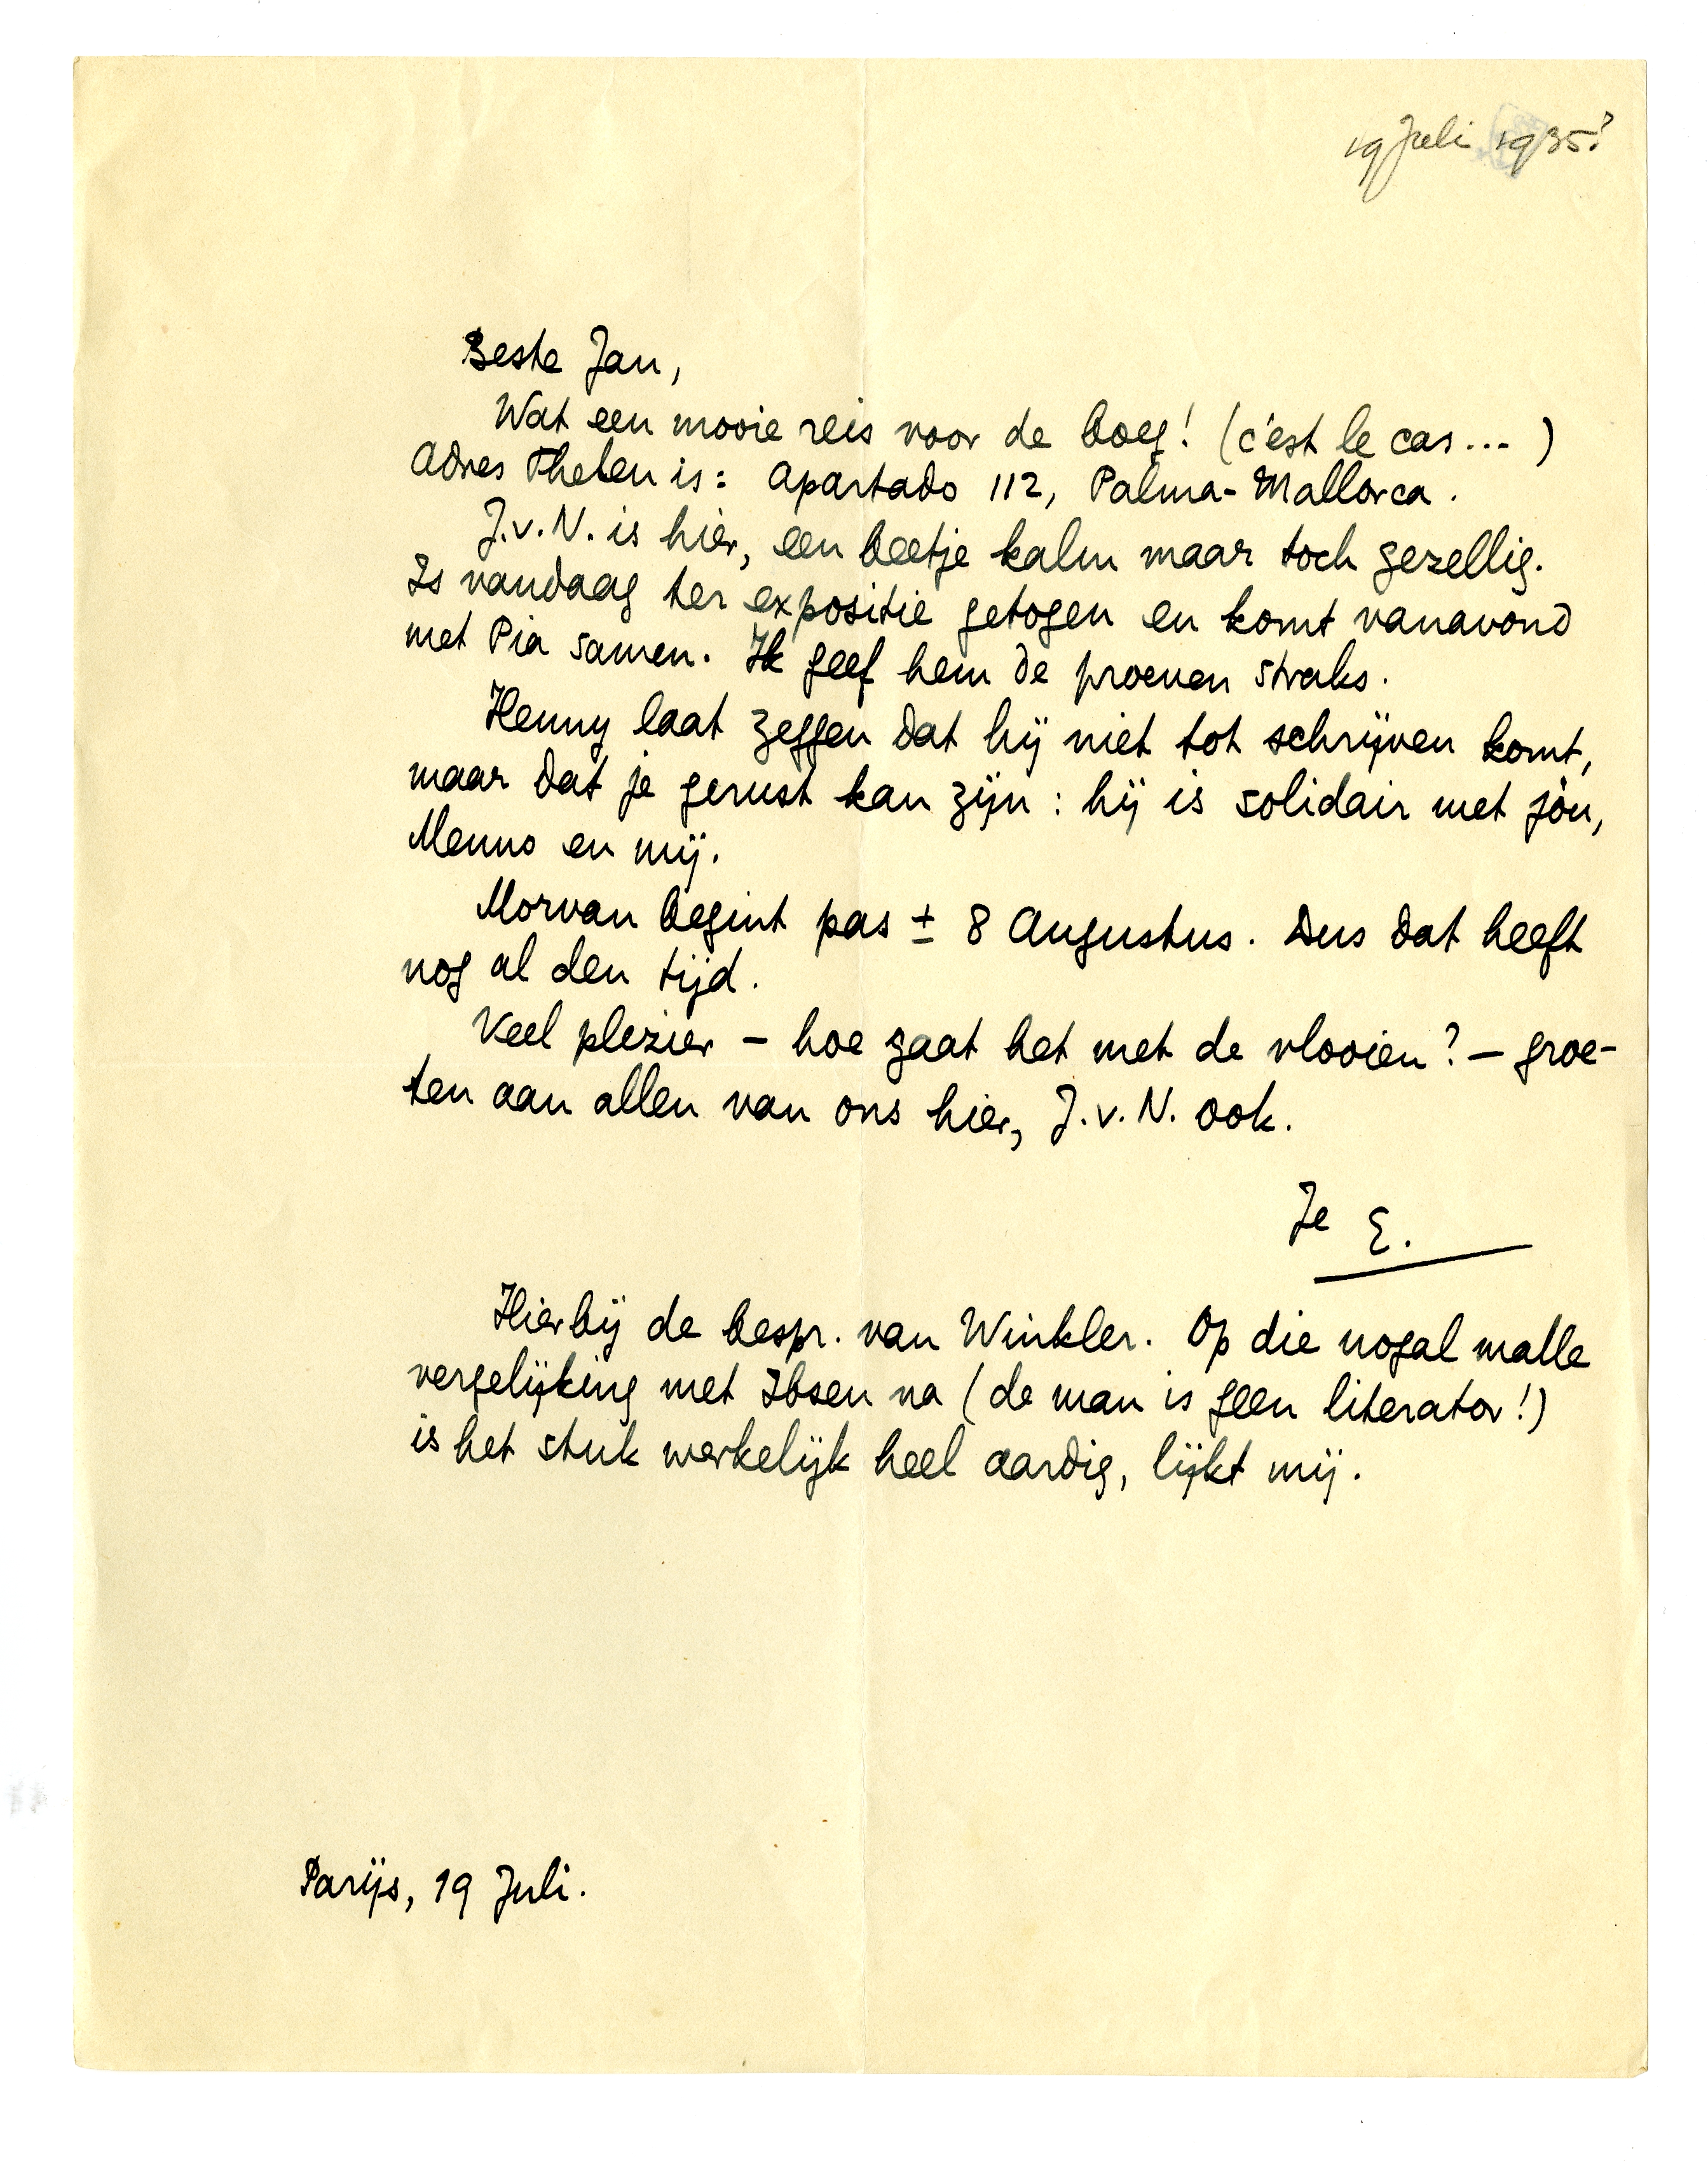 19 Juli 1935?
Beste Jan,
Wat een mooie reis voor de boeg! (c'est le cas...)
Adres Thelen is: Apartado 112, Palma-Mallorca.
J.v.N. is hier, een beetje kalm maar toch gezellig.
Is vandaag ter expositie getogen en komt vanavond
met Pia samen. Ik geef hem de proeven straks.
Henny laat zeggen dat hij niet tot schrijven komt,
maar dat je gerust kan zijn: hij is solidair met jòu,
Menno en mij.
Morvan begint pas ± 8 Augustus. Dus dat heeft
nog al den tijd.
Veel plezier - hoe gaat het met de vlooien? - groe-
ten aan allen van ons hier, J.v.N. ook.
Je E.
Hierbij de bespr. van Winkler. Op die nogal malle
vergelijking met Ibsen na (de man is geen literator!)
is het stuk werkelijk heel aardig, lijkt mij.
Parijs, 19 Juli.